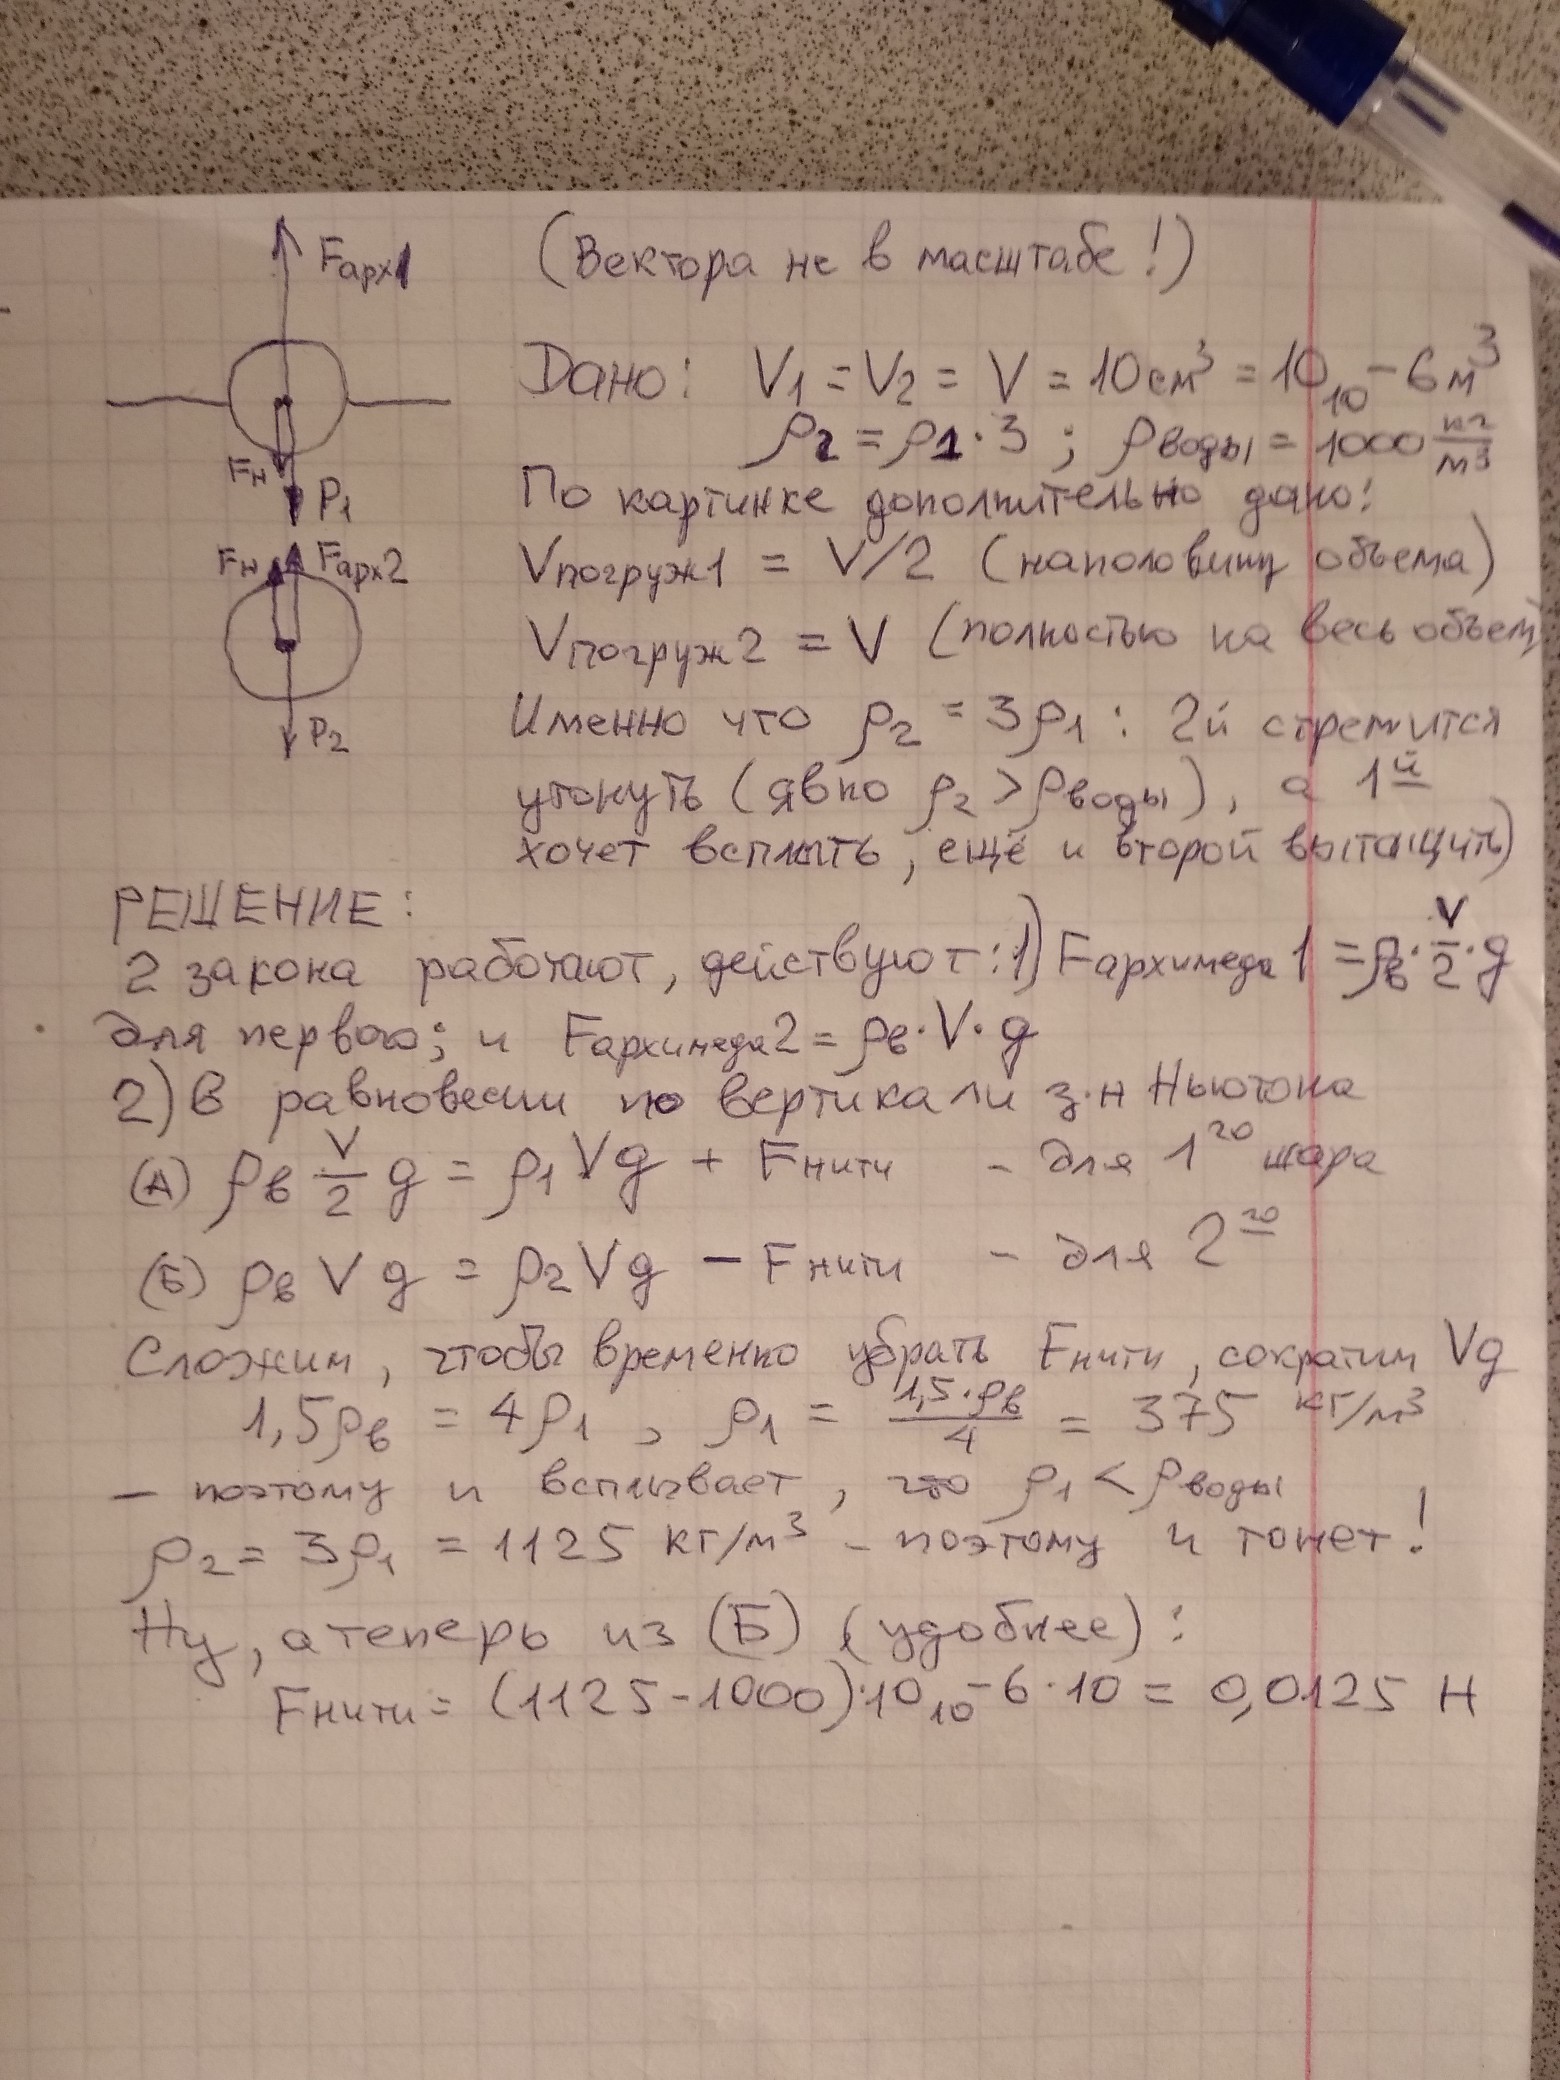 Fарх1 (Вектора не в масштабе!)
Дано: V1 = V2 = V = 10см³ = 10 10 -6 м³
Fн ρ2 = ρ1·3 ; ρводы = 1000 кг/м³
P1 По картинке дополнительно дано:
Fн Fарх2 Vпогруж1 = V/2 (наполовину объема)
Vпогруж2 = V (полностью на весь объем
P2 Именно что ρ2 = 3ρ1 : 2й стремится
утонуть (явно ρ2 > ρводы), а 1й
хочет всплыть, ещё и второй вытащить)
РЕШЕНИЕ:
2 закона работают, действуют: 1) Fархимеда1 = ρв·V/2·g
для первого; и Fархимеда2 = ρв·V·g
2) В равновесии по вертикали з-н Ньютона
(А) ρв V/2 g = ρ1Vg + Fнити - для 1го шара
(Б) ρв V g = ρ2Vg - Fнити - для 2го
Сложим, чтобы временно убрать Fнити, сократим Vg
1,5ρв = 4ρ1 , ρ1 = 1,5·ρв/4 = 375 кг/м³
- поэтому и всплывает, что ρ1 < ρводы
ρ2 = 3ρ1 = 1125 кг/м³ - поэтому и тонет!
Ну, а теперь из (Б) (удобнее):
Fнити = (1125-1000)·10 10 -6·10 = 0,0125 Н